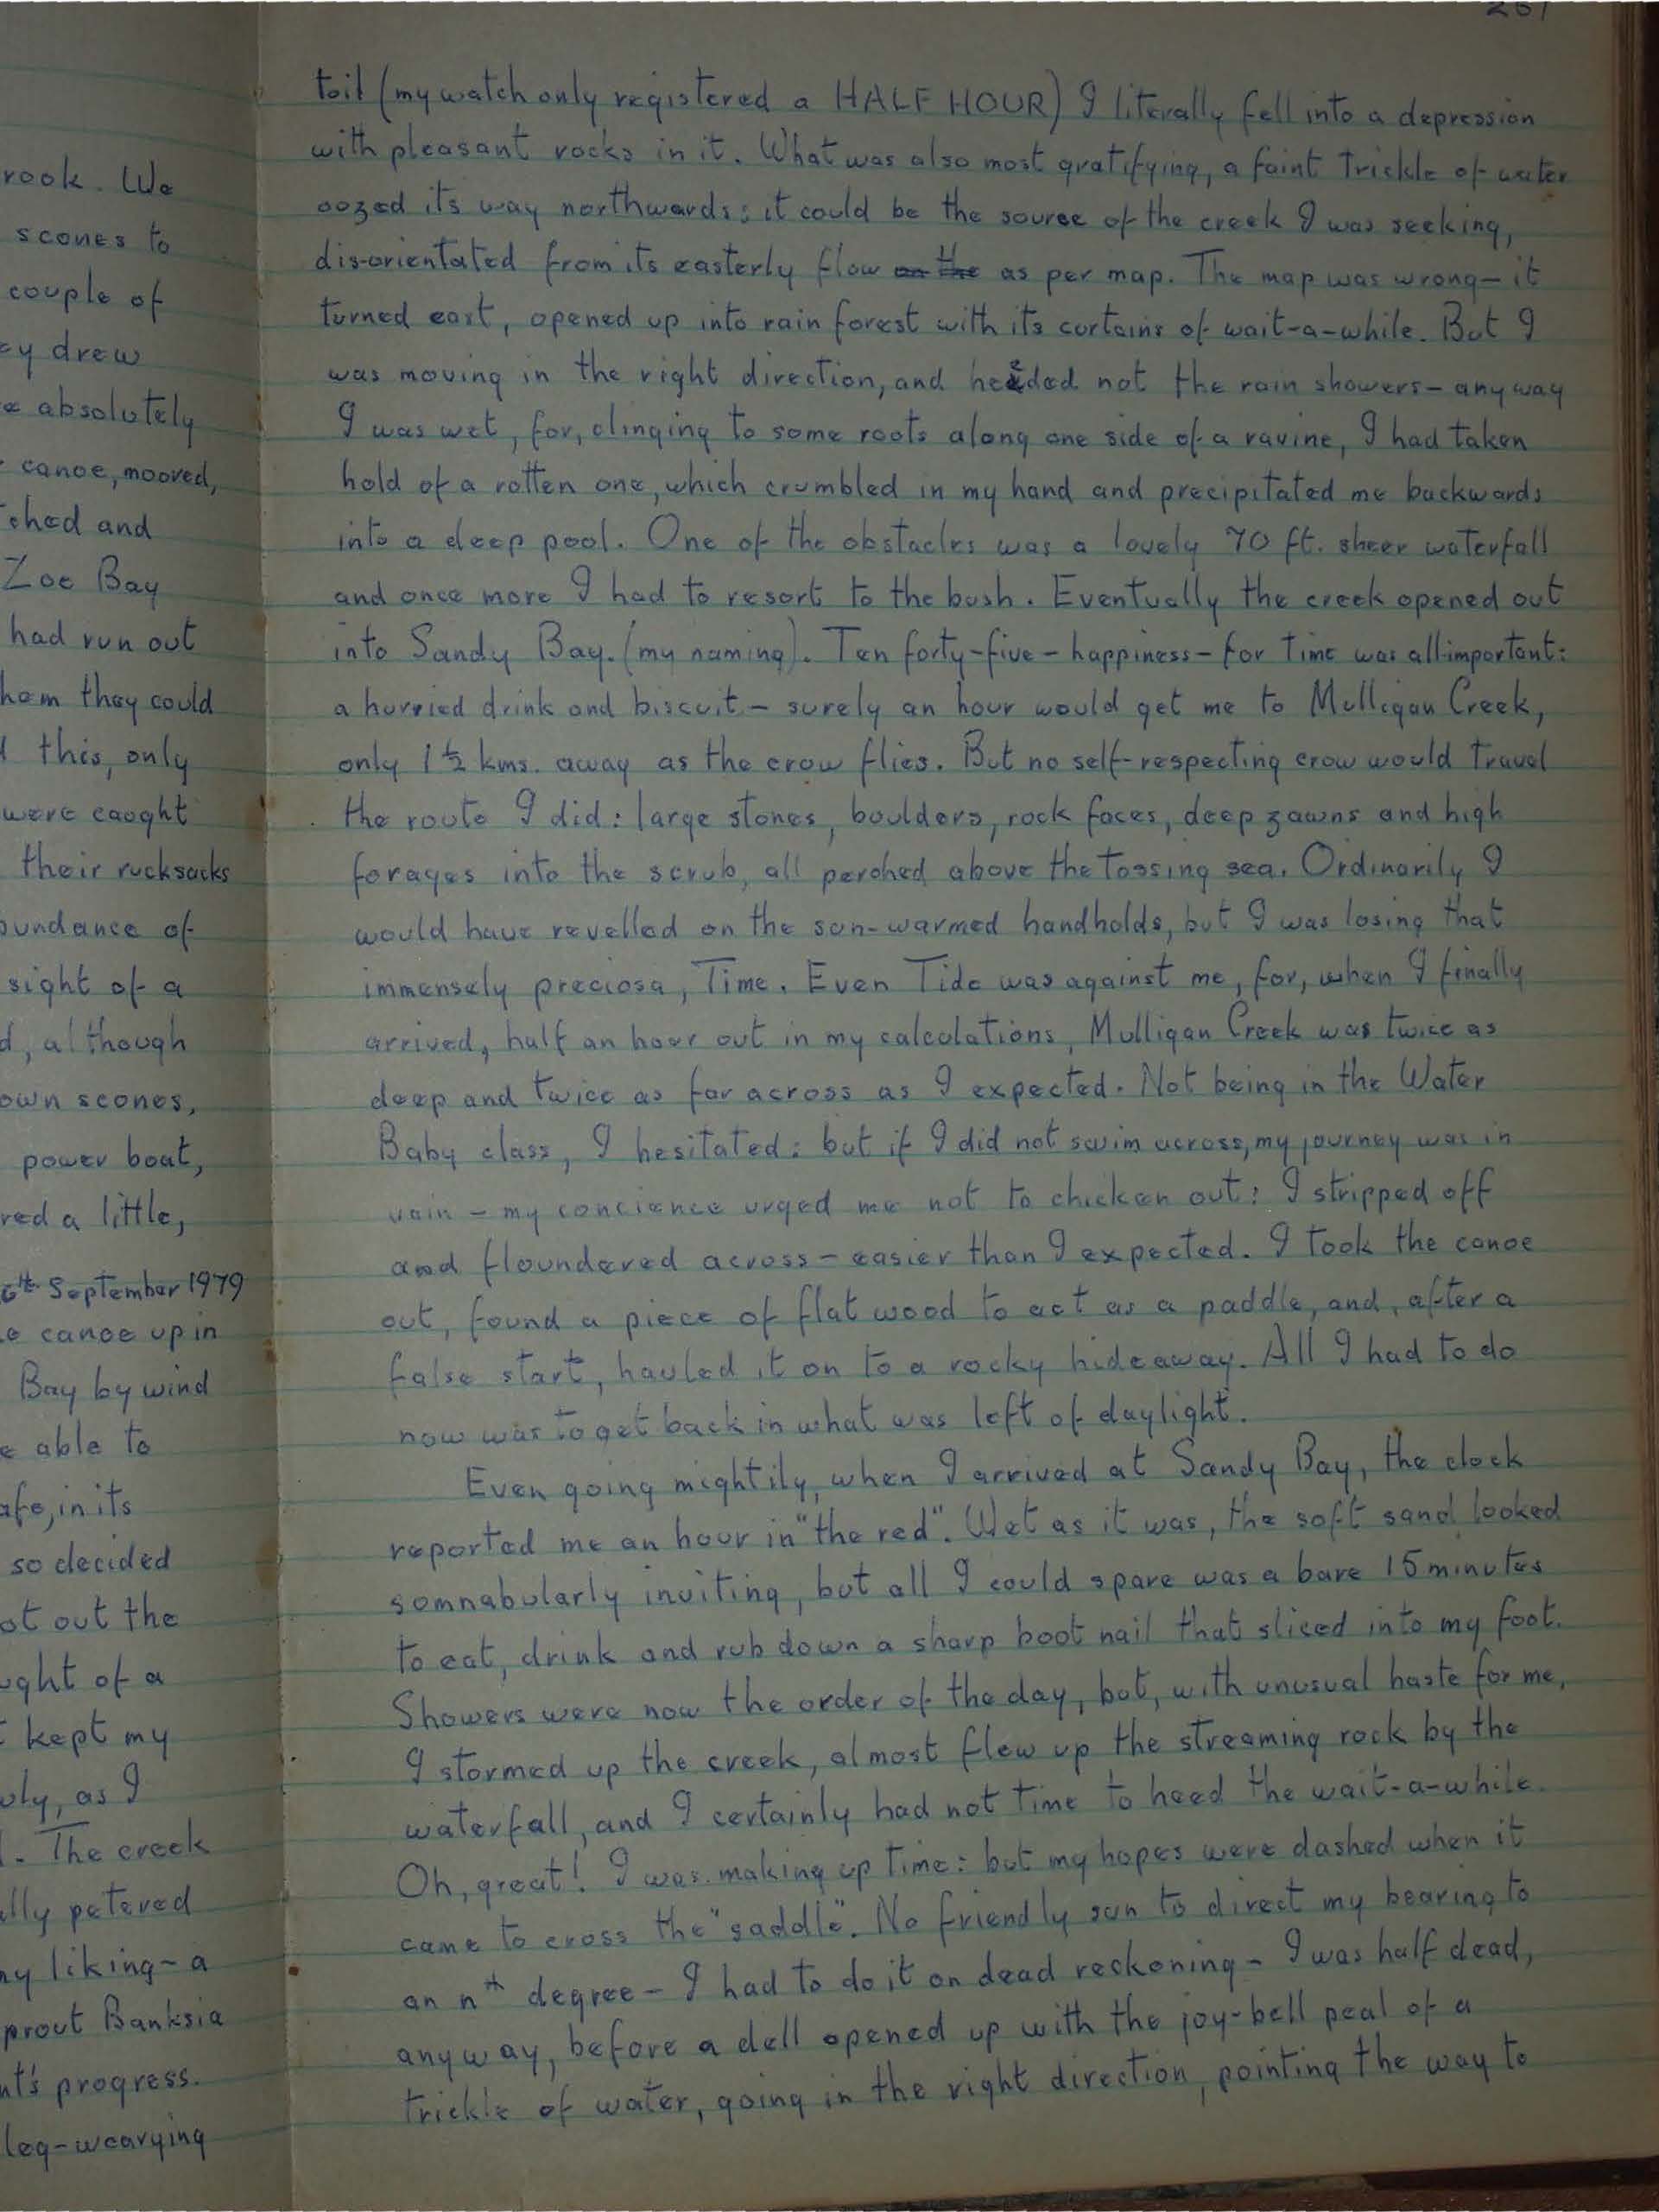 rook. We
scones to
couple of
ey drew
e absolutely
canoe, moored,
ched and
Zoe Bay
had run out
hom they could
this, only
were caught
their rucksacks
bundance of
sight of a
d, although
own scones,
power boat,
red a little,
6th September 1979
e canoe up in
Bay by wind
e able to
afe, in its
so decided
ot out the
ught of a
kept my
uly, as I
. The creek
lly petered
ny liking - a
prout Banksia
nt's progress.
leg-wearying
261
toil (my watch only registered a HALF HOUR) I literally fell into a depression
with pleasant rocks in it. What was also most gratifying, a faint trickle of water
oozed its way northwards: it could be the source of the creek I was seeking,
dis-orientated from its easterly flow on the as per map. The map was wrong - it
turned east, opened up into rain forest with its curtains of wait-a-while. But I
was moving in the right direction, and heeded not the rain showers - anyway
I was wet, for, clinging to some roots along one side of a ravine, I had taken
hold of a rotten one, which crumbled in my hand and precipitated me backwards
into a deep pool. One of the obstacles was a lovely 70 ft. sheer waterfall
and once more I had to resort to the bush. Eventually the creek opened out
into Sandy Bay. (my naming). Ten forty-five - happiness - for time was all-important:
a hurried drink and biscuit - surely an hour would get me to Mulligan Creek,
only 1½ kms. away as the crow flies. But no self-respecting crow would travel
the route I did: large stones, boulders, rock faces, deep zawns and high
forages into the scrub, all perched above the tossing sea. Ordinarily I
would have revelled on the sun-warmed handholds, but I was losing that
immensely preciosa, Time. Even Tide was against me, for, when I finally
arrived, half an hour out in my calculations, Mulligan Creek was twice as
deep and twice as far across as I expected. Not being in the Water
Baby class, I hesitated: but if I did not swim across, my journey was in
vain - my concience urged me not to chicken out: I stripped off
and floundered across - easier than I expected. I took the canoe
out, found a piece of flat wood to act as a paddle, and, after a
false start, hauled it on to a rocky hideaway. All I had to do
now was to get back in what was left of daylight.
Even going mightily, when I arrived at Sandy Bay, the clock
reported me an hour in "the red". Wet as it was, the soft sand looked
somnabularly inviting, but all I could spare was a bare 15 minutes
to eat, drink and rub down a sharp boot nail that sliced into my foot.
Showers were now the order of the day, but, with unusual haste for me,
I stormed up the creek, almost flew up the streaming rock by the
waterfall, and I certainly had not time to heed the wait-a-while.
Oh, great! I was making up time: but my hopes were dashed when it
came to cross the "saddle". No friendly sun to direct my bearing to
an nth degree - I had to do it on dead reckoning - I was half dead,
anyway, before a dell opened up with the joy-bell peal of a
trickle of water, going in the right direction, pointing the way to